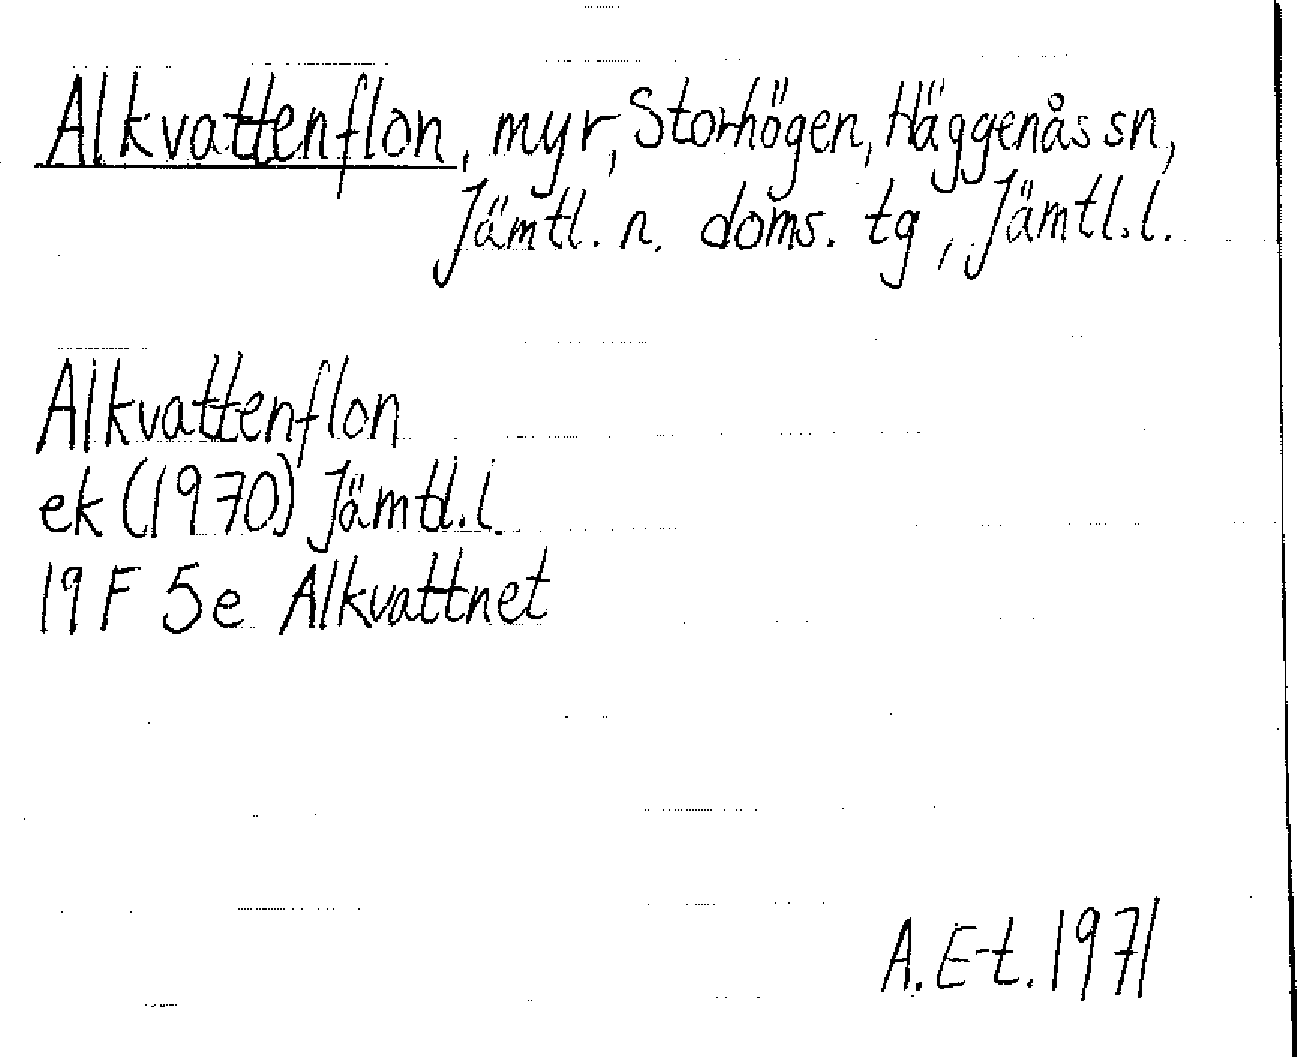 Alkvattenflon, myr, Storhögen, Häggenås sn,
Jämtl. n. doms. tg, Jämtl.l.
Alkvattenflon
ek (1970) Jämtl.l.
19 F 5e Alkvattnet
A. E-t. 1971